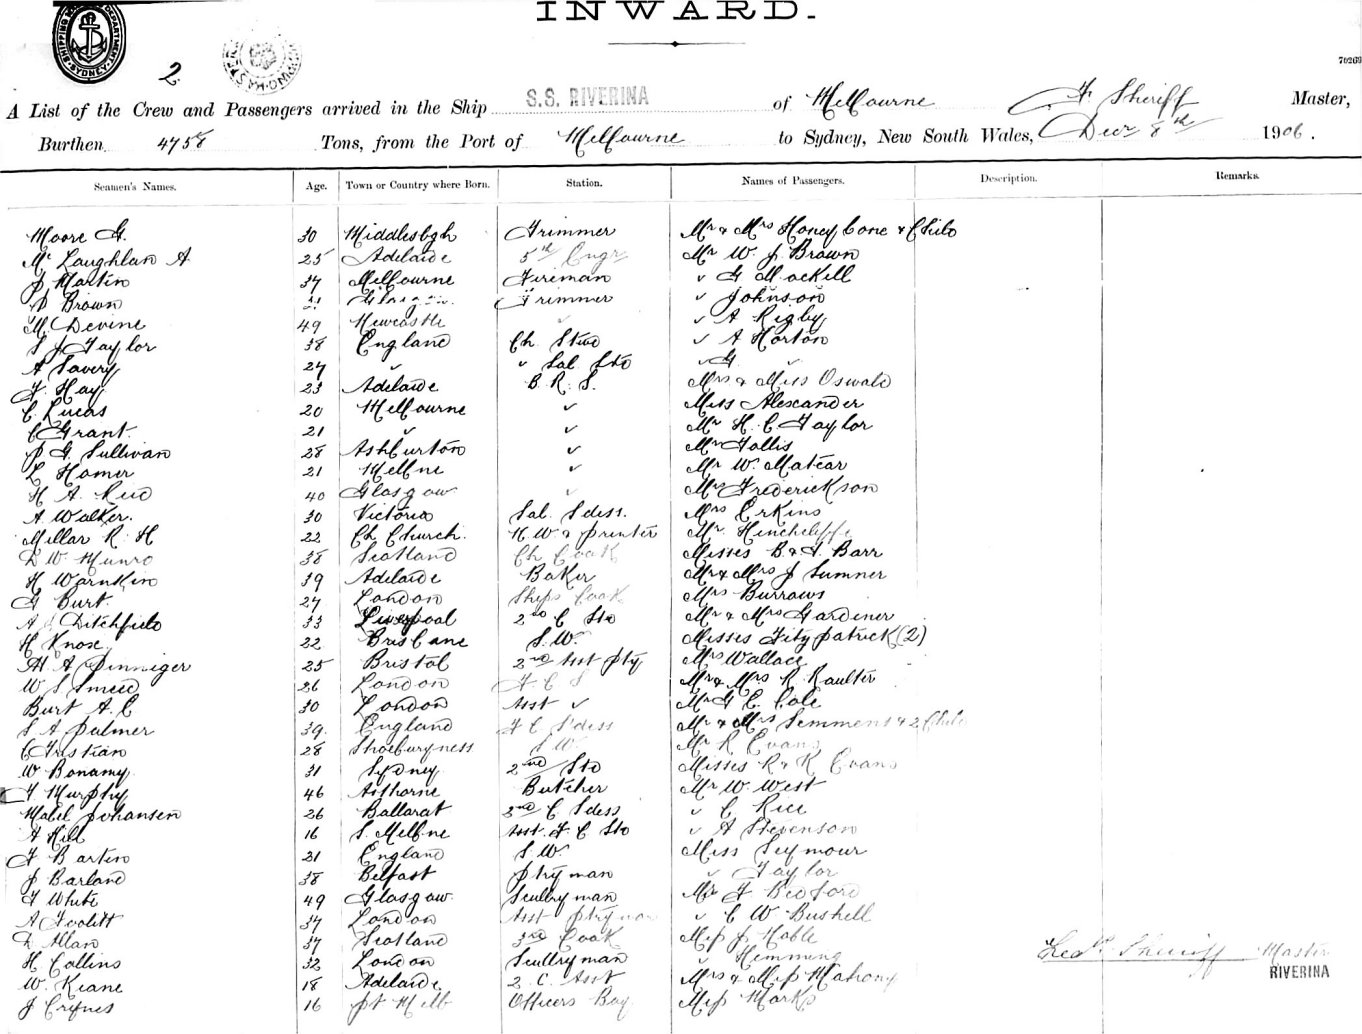 INWARD.
SHIPPING MASTER'S DEPARTMENT SYDNEY
2
70269
A List of the Crew and Passengers arrived in the Ship S.S. RIVERINA of Melbourne F. Sheriff Master,
Burthen 4758 Tons, from the Port of Melbourne to Sydney, New South Wales, Decr 8th 1906.
Seamen's Names. Age. Town or Country where Born. Station. Names of Passengers. Description. Remarks.
Moore G. 30 Middlesbgh Trimmer Mr & Mrs Honey bone & Child
Mc Laughlan A 25 Adelaide 5th Engr Mr W. J Brown
J Martin 37 Melbourne Fireman " G Mackill
Brown Glasgow Trimmer " Johnson
M. Devine 49 Newcastle " " A Rigby
S J Taylor 38 England Ch Stwd " A Horton
A Savery 27 " " Sal Std " G "
F. Hay 23 Adelaide B. R. S. Mrs & Miss Oswald
C Lucas 20 Melbourne " Miss Alexander
C Grant. 21 " " Mr H. C Taylor
P G. Sullivan 28 Ashburton " Mr Tollis
L Homer 21 Melbne " Mr W. Matear
H A. Reid 40 Glasgow " Mrs Frederickson
A. Walker. 30 Victoria Sal. Sdess. Mrs Erkins
Millar R. H 22 Ch Church. H. W. & Printer Mr Hinchcliffe
D W. Munro 38 Scotland Ch Cook Misses B & F. Barr
H Warnken 39 Adelaide Baker Mr & Mrs J Sumner
G Burt. 27 London Ships Cook Mrs Burrows
A S Ditchfield 33 Liverpool 2nd C Std Mr & Mrs Gardener
H Knose. 22 Brisbane S. W. Misses Fitzpatrick (2)
A Pinniger 25 Bristol 2nd Asst Pty Mrs Wallace
W S Smeed 26 London F. C S Mr & Mrs R Raulter
Burt A. C 30 London Asst " Mr G E. Cole
S A Palmer 39. England F C Sdess Mr & Mrs Semmens & 2 Child
Christian 28 Shoeburyness S. W. Mr R Evans
W Bonamy 31 Sydney 2nd Std Misses R & K Evans
F. Murphy 46 Butcher Mr W. West
Mabel Johansen 26 Ballarat 2nd C Sdess " C Rice
A Hill 16 S. Melbne Asst. F. C Std " A Stevenson
F Barton 21 England S. W. Miss Seymour
J Barland 38 Belfast Ptry man " Taylor
F White 49 Glasgow Scullry man Mr F Bedford
A 37 London Asst Ptryman " C W. Bushell
D Allan 37 Scotland 3rd Cook Miss J Noble
H Collins 32 London Scullry man " Hemming
Geo. Sheriff Master
RIVERINA
W. Keane 18 Adelaide 2. C. Asst Mrs & Miss Mahony
J 16 Pt Melb Officers Boy Miss Marks